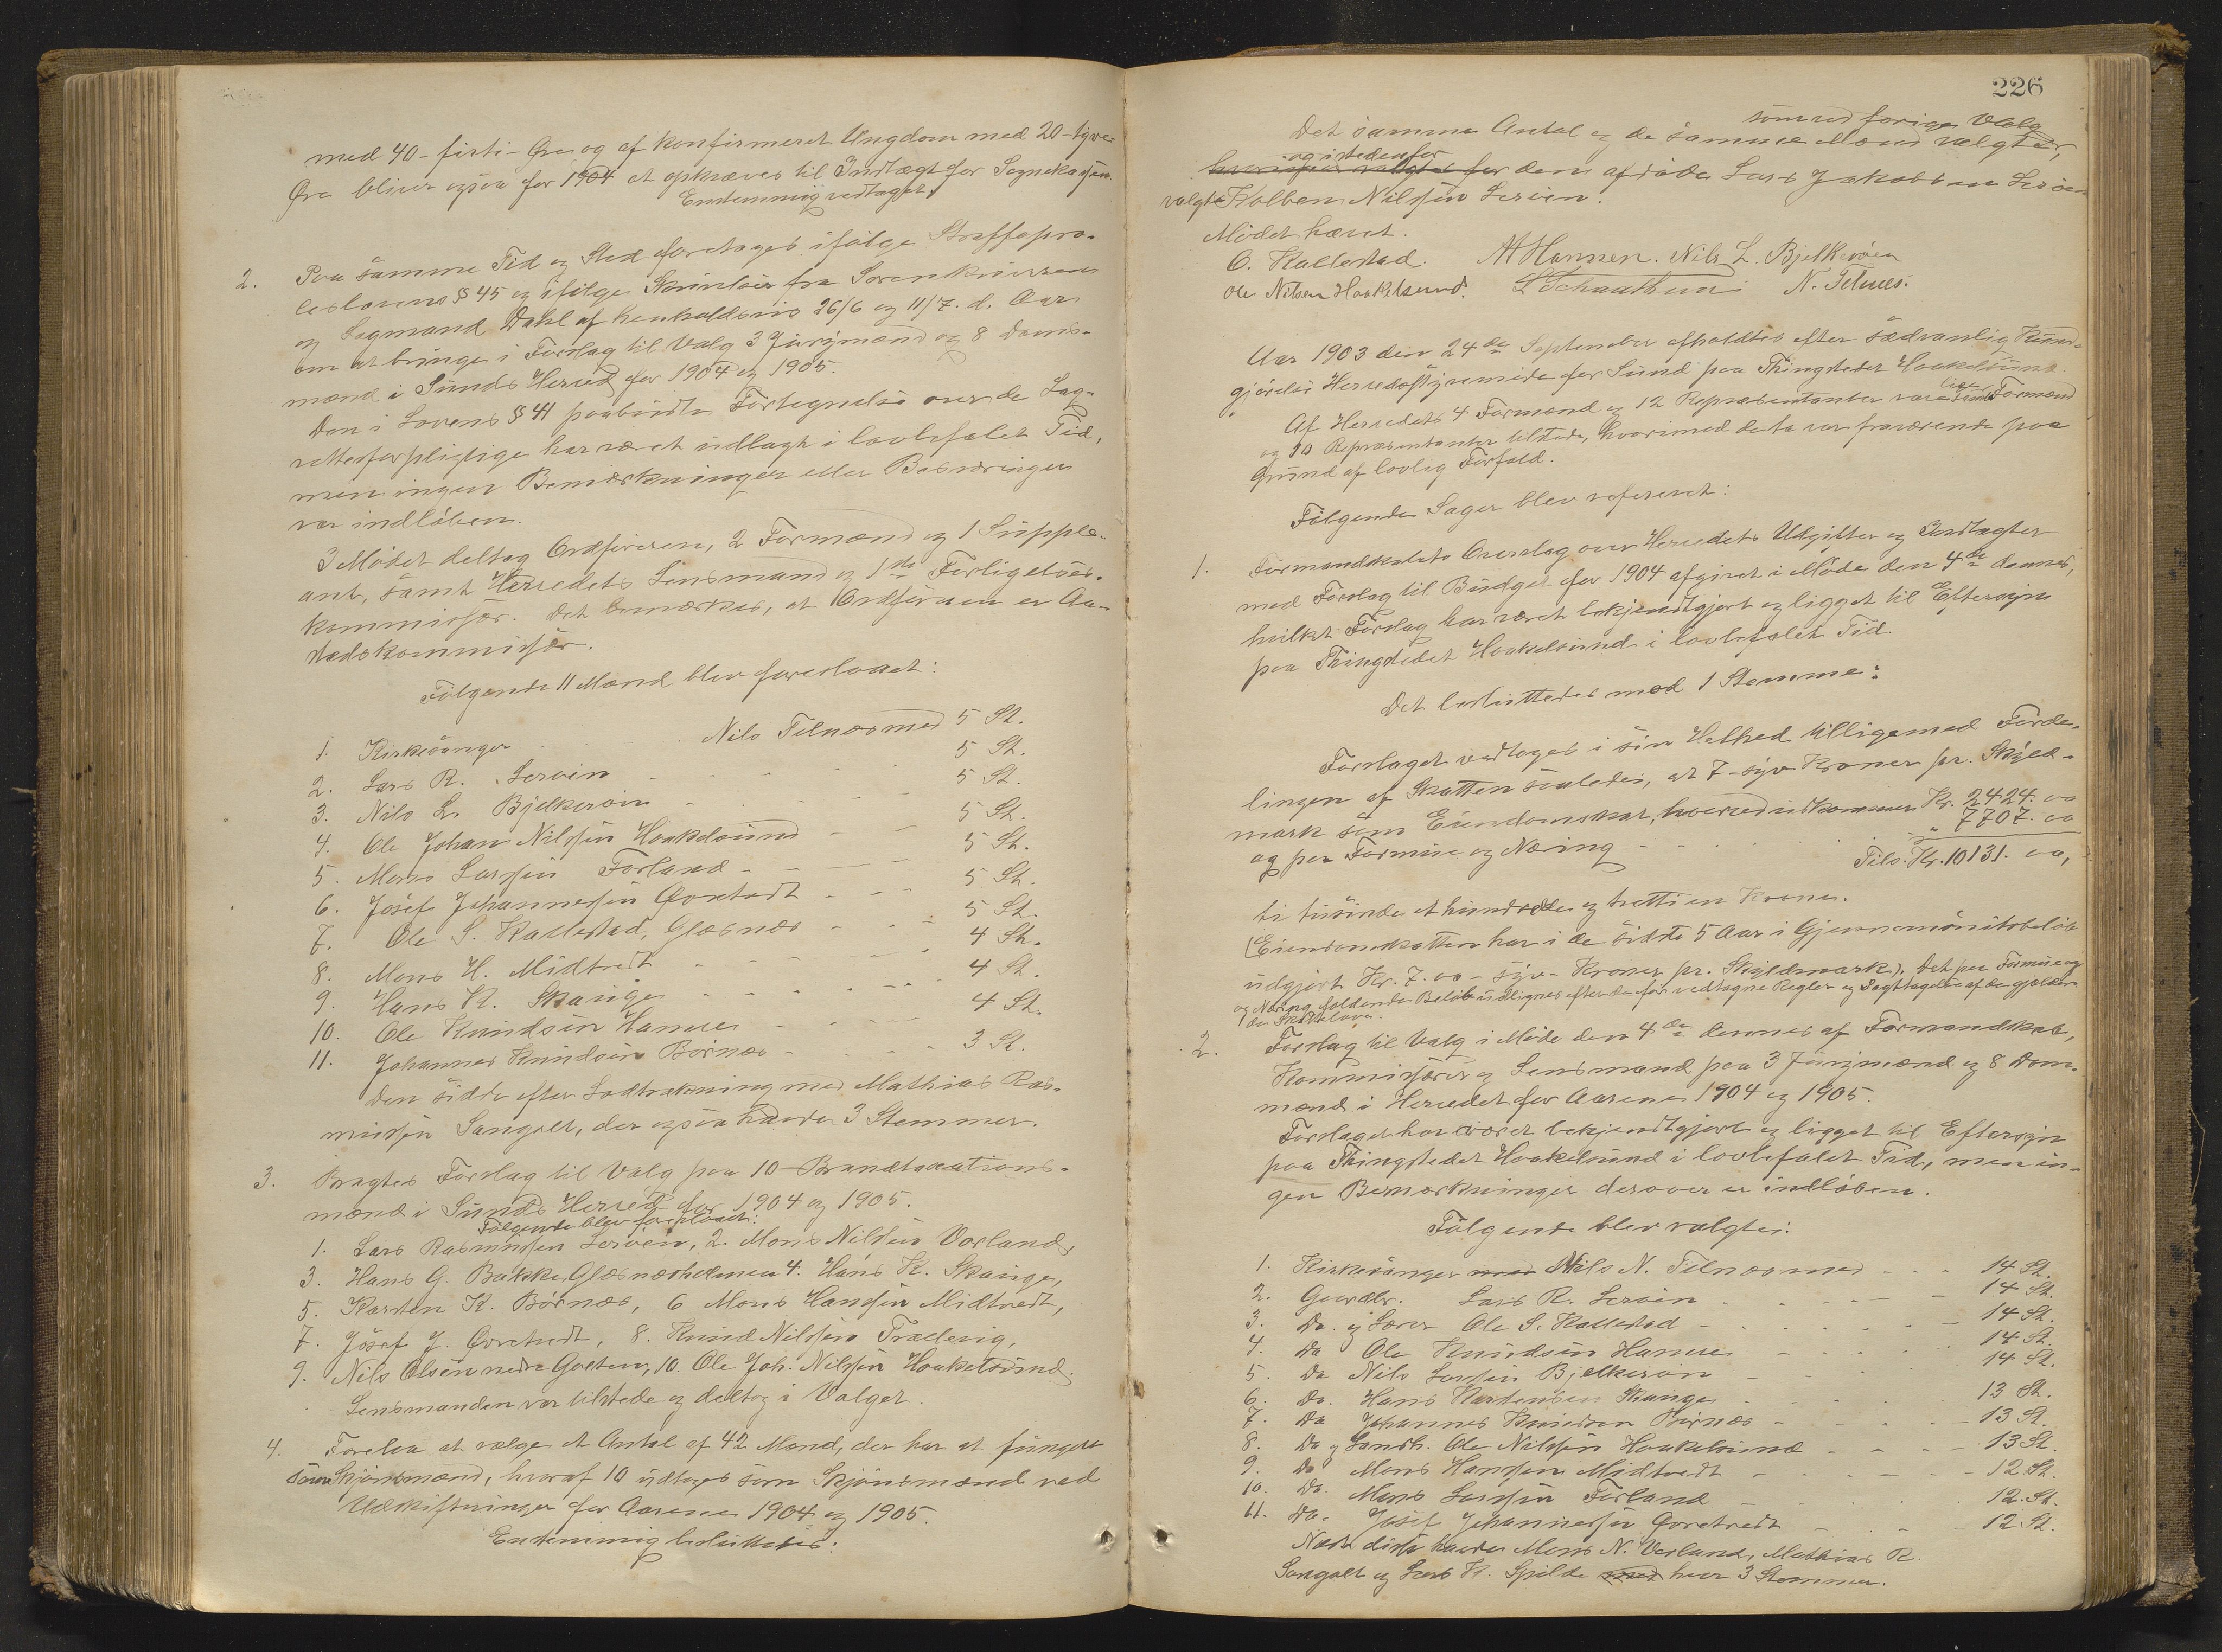 med 40 - firti - Øre og af konfirmeret Ungdom med 20 - tyve
Øre bliver ogsaa for 1904 at opkræves til Indtægt for Sognekassen.
Enstemmig vedtaget.
2. Paa samme Tid og Sted foretoges ifølge Straffepro-
ceslovens § 45 og ifølge Skrivelser fra Sorenskriveren
og Lagmand Dahl af henholdsvis 26/6 og 11/7. d. Aar
om at bringe i Forslag til Valg 3 Jurymænd og 8 Doms-
mænd i Sunds Herred for 1904 og 1905.
Den i Lovens § 41 paabudte Fortegnelse over de Lag-
rettesforpligtige har været udlagt i lovbefalet Tid,
men ingen Bemærkninger eller Besværinger
var indløben.
I Mødet deltog Ordføreren, 2 Formænd og 1 Supple-
ant, samt Herredets Lensmand og 1ste Forligelses-
kommissær. Det bemærkes, at Ordføreren er An-
dedskommissær.
Følgende 11 Mænd blev foreslaaet:
1. Kirkesanger Nils Telnæs med 5 St.
2. Lars R. Lerøen 5 St.
3. Nils L. Bjelkerøen 5 St.
4. Ole Johan Nilssen Haakelsund 5 St.
5. Mons Larssen Førland 5 St.
6. Josef Johannessen Qvretvedt 5 St.
7. Ole S. Kallestad, Glæsnæs 5 St.
8. Mons H. Midtvedt 4 St.
9. Hans K. Skauge 4 St.
10. Ole Knudsen Hamre 4 St.
11. Johannes Knudsen Børnæs 3 St.
Den sidste efter Lodtrækning med Mathias Ras-
mussen Sangolt, der ogsaa havde 3 Stemmer.
3. Bragtes Forslag til Valg paa 10 Brandtaxations-
mænd i Sunds Herred for 1904 og 1905.
Følgende blev foreslaaet:
1. Lars Rasmussen Lerøen, 2. Mons Nilssen Vorland,
3. Hans G. Bakke, Glæsnæsholmen 4. Hans K. Skauge,
5. Karsten K. Børnæs, 6 Mons Hanssen Midtvedt,
7. Josef J. Qvretvedt, 8. Knud Nilssen Trællevig,
9. Nils Olsen nedre Golten, 10. Ole Joh. Nilssen Haakelsund.
Lensmanden var tilstede og deltog i Valget.
4. Forelaa at vælge et Antal af 42 Mænd, der har at fungere
som Skjønsmænd, hvoraf 10 udtages som Skjønsmænd ved
Udskiftninger for Aarene 1904 og 1905.
Enstemmig besluttedes:
226
som ved forrige Valg
Det samme Antal og de samme Mænd vælgtes,
og istedenfor
for den afdøde Lars Jakobsen Lerøen
valgtes Kolben Nilssen Lerøen.
Mødet hævet.
O. Kallestad. M Hanssen. Nils L. Bjelkerøen
Ole Nilsen Haakelsund. L Schaathun N. Telnæs.
Aar 1903 den 24de September afholdtes efter sædvanlig Kund-
gjørelse Herredsstyremøde for Sund paa Thingstedet Haakelsund.
Af Herredets 4 Formænd og 12 Repræsentanter var alle Formænd
og 10 Repræsentanter tilstede, hvorimod de to var fraværende paa
Grund af lovlig Forfald.
Følgende Sager blev referert:
1. Formandskabets Overslag over Herredets Udgifter og Indtægter
med Forslag til Budget for 1904 afgivet i Møde den 4de dennes,
hvilket Forslag har været bekjendtgjort og ligget til Eftersyn
paa Thingstedet Haakelsund i lovbefalet Tid.
Det besluttedes med 1 Stemme:
Forslaget vedtages i sin Helhed tilligemed Forde-
lingen af Skatten saaledes, at 7 - syv Kroner pr. Skyld-
mark som Eiendomsskat, hvorved udkommer Kr. 2424. 00
og paa Formue og Næring " 7707. 00
Tils. Kr. 10131. 00,
ti tusinde et hundrede og tretti en Krone.
(Eiendomsskatten har i de sidste 5 Aar i Gjennemsnitsbeløb
udgjort Kr. 7. 00 - syv - Kroner pr. Skyldmark). Det paa Formue og
og Næring faldende Beløb udlignes efter de før vedtagne Regler og Iagttagelse af de gjælden-
de Skattelove.
2. Forslag til Valg i Møde den 4de dennes af Formandskab,
Kommissærer og Lensmand paa 3 Jurymænd og 8 Doms-
mænd i Herredet for Aarene 1904 og 1905.
Forslaget har været bekjendtgjort og ligget til Eftersyn
paa Thingstedet Haakelsund i lovbefalet Tid, men in-
gen Bemærkninger derover er indløben.
Følgende blev valgte:
1. Kirkesanger med Nils N. Telnæs med 14 St.
2. Gaardbr. Lars R. Lerøen 14 St.
3. Do. og Lærer Ole S. Kallestad 14 St.
4. Do Ole Knudsen Hamre 14 St.
5. Do Nils Larssen Bjelkerøen 14 St.
6. Do. Hans Karstensen Skauge 13 St.
7. Do Johannes Knudsen Børnæs 13 St.
8. Do og Landh. Ole Nilssen Haakelsund 13 St.
9. Do Mons Hanssen Midtvedt 12 St.
10. Do. Mons Larssen Førland 12. St.
11. Do. Josef Johannessen Qvretvedt 12 St.
Næst disse havde Mons N. Vorland, Mathias R.
Sangolt og Lars K. Spilde med hver 3 Stemmer.